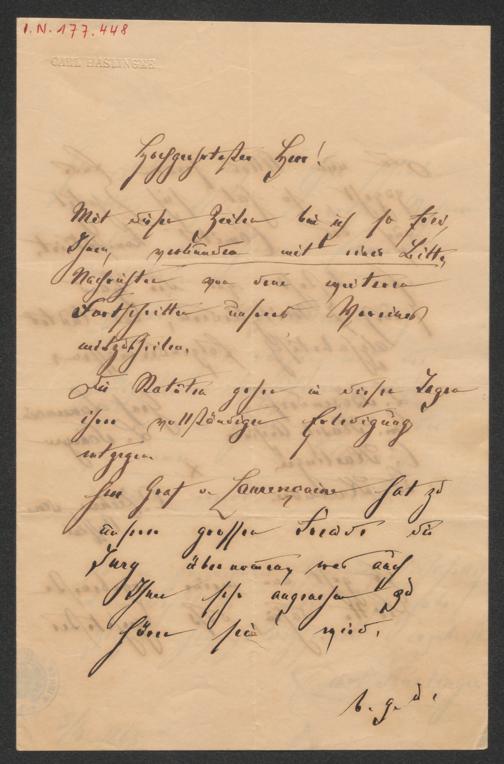 I.N. 177.448
CARL HASLINGER
Hochgeehrtester Herr!
Mit diesen Zeilen bin ich so frei,
Ihnen, verbunden mit einer Bitte,
Nachrichten von dem weiteren
Fortschritten unseres Vereines
mitzutheilen.
Die Statuten gehen in diesen Tagen
ihrer vollständigen Erledigung
entgegen.
Herr Graf v. Laurencin hat zu
unserer grossen Freude die
übernommen, was auch
Ihnen sehr angenehm zu
hören sein wird.